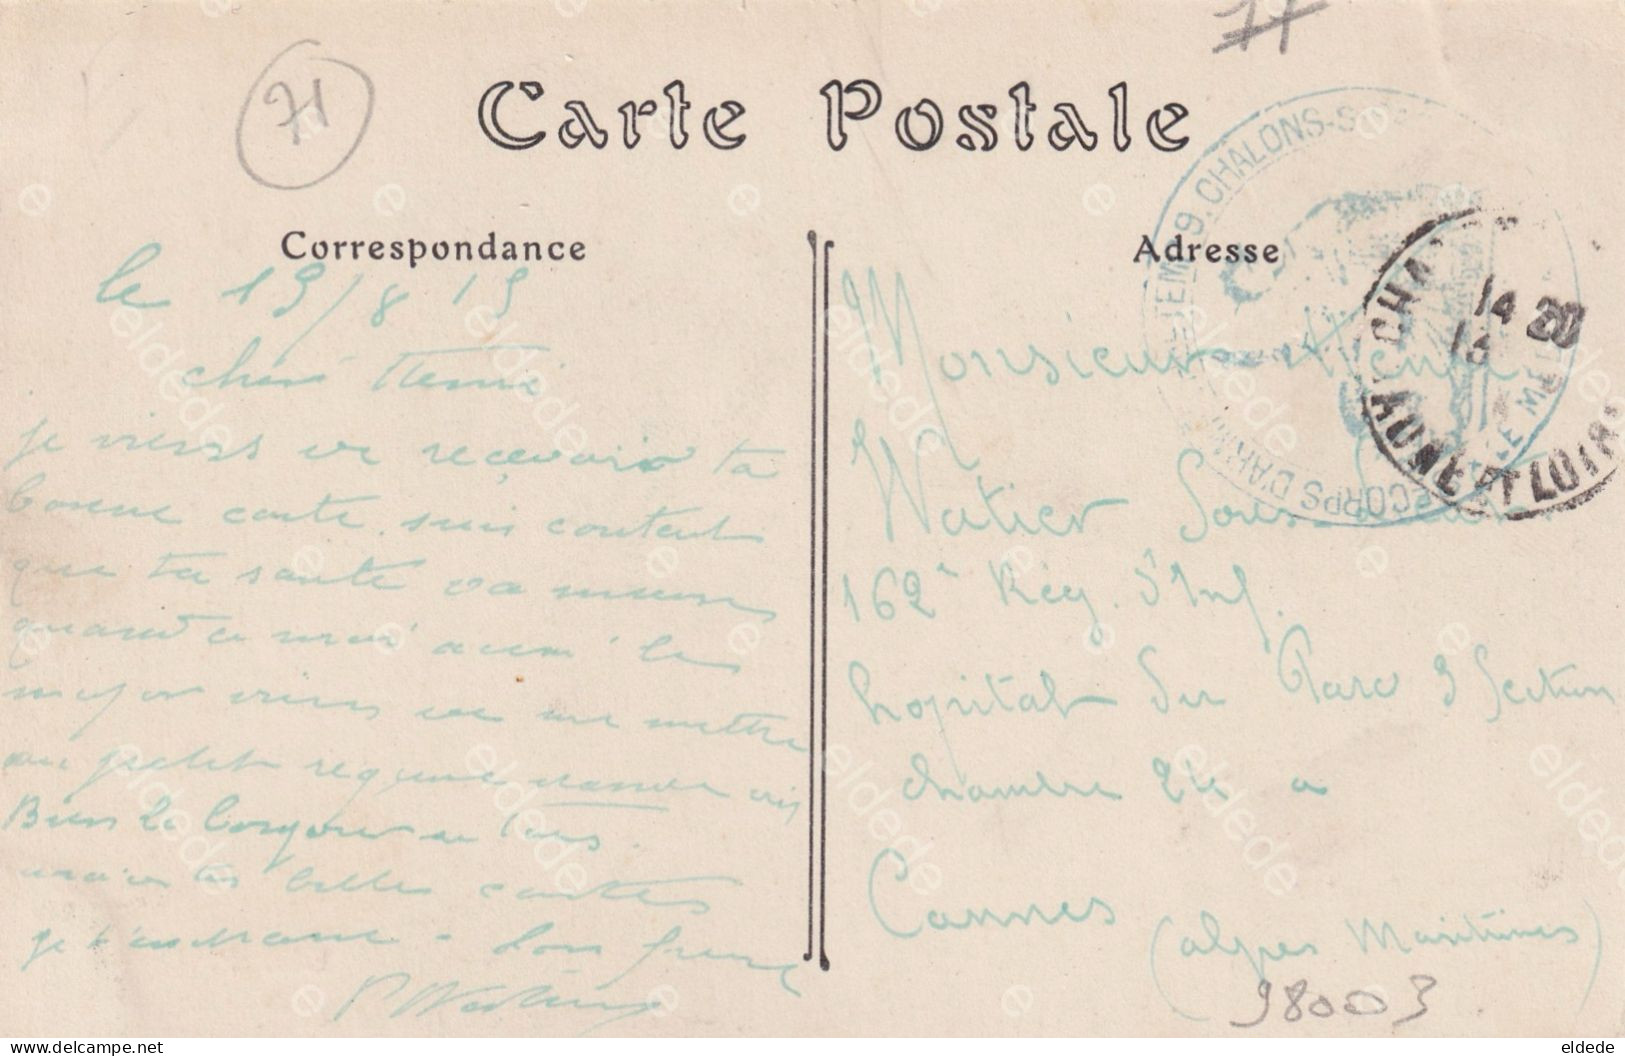 71
Carte Postale
Correspondance
Adresse
le 13/8 15
cher Henri
je viens de recevoir ta
bonne carte suis content
que ta santé va mieux
quant a moi aussi les
major viens de me mettre
au petit régime
Bien le bonjour a tous.
belles cartes
je t'embrasse - ton frère
P Watier
Monsieur Henri
Watier Sous-Lieut
162e Rég. d'Inf.
hopital du Parc 3 Section
chambre 24 a
Cannes
(alpes Maritimes)
98003
CHALONS-S
CORPS D'ARM
14 20
13
CHA
SAONE ET LOIRE
eldede